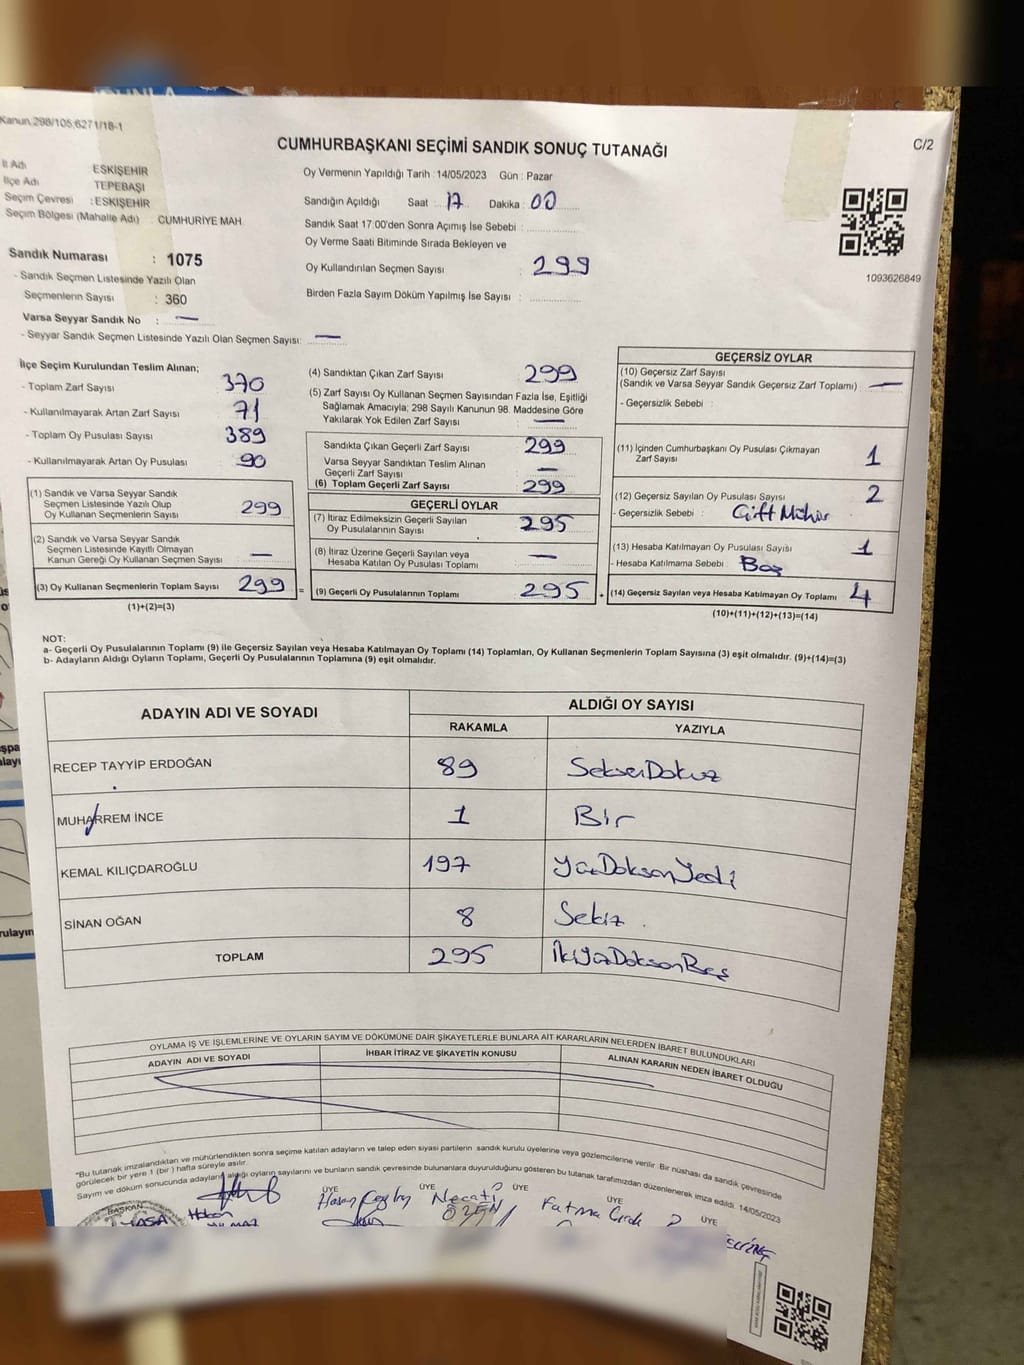 Kanun,298/105;6271/18-1
CUMHURBAŞKANI SEÇİMİ SANDIK SONUÇ TUTANAĞI
C/2
İl Adı ESKİŞEHİR
İlçe Adı TEPEBAŞI
Seçim Çevresi : ESKİŞEHİR
Seçim Bölgesi (Mahalle Adı) : CUMHURİYE MAH.
Sandık Numarası : 1075
- Sandık Seçmen Listesinde Yazılı Olan
Seçmenlerin Sayısı : 360
Varsa Seyyar Sandık No : —
- Seyyar Sandık Seçmen Listesinde Yazılı Olan Seçmen Sayısı: —
Oy Vermenin Yapıldığı Tarih : 14/05/2023 Gün : Pazar
Sandığın Açıldığı Saat : 17 Dakika : 00
Sandık Saat 17:00'den Sonra Açımış İse Sebebi :
Oy Verme Saati Bitiminde Sırada Bekleyen ve
Oy Kullandırılan Seçmen Sayısı : 299
Birden Fazla Sayım Döküm Yapılmış İse Sayısı :
1093626849
İlçe Seçim Kurulundan Teslim Alınan;
- Toplam Zarf Sayısı 370
- Kullanılmayarak Artan Zarf Sayısı 71
- Toplam Oy Pusulası Sayısı 389
- Kullanılmayarak Artan Oy Pusulası 90
(1) Sandık ve Varsa Seyyar Sandık
Seçmen Listesinde Yazılı Olup
Oy Kullanan Seçmenlerin Sayısı 299
(2) Sandık ve Varsa Seyyar Sandık
Seçmen Listesinde Kayıtlı Olmayan
Kanun Gereği Oy Kullanan Seçmen Sayısı —
(3) Oy Kullanan Seçmenlerin Toplam Sayısı 299 =
(1)+(2)=(3)
(4) Sandıktan Çıkan Zarf Sayısı 299
(5) Zarf Sayısı Oy Kullanan Seçmen Sayısından Fazla İse, Eşitliği
Sağlamak Amacıyla; 298 Sayılı Kanunun 98. Maddesine Göre
Yakılarak Yok Edilen Zarf Sayısı —
Sandıkta Çıkan Geçerli Zarf Sayısı 299
Varsa Seyyar Sandıktan Teslim Alınan
Geçerli Zarf Sayısı —
(6) Toplam Geçerli Zarf Sayısı 299
GEÇERLİ OYLAR
(7) İtiraz Edilmeksizin Geçerli Sayılan
Oy Pusulalarının Sayısı 295
(8) İtiraz Üzerine Geçerli Sayılan veya
Hesaba Katılan Oy Pusulası Toplamı —
(9) Geçerli Oy Pusulalarının Toplamı 295 +
GEÇERSİZ OYLAR
(10) Geçersiz Zarf Sayısı
(Sandık ve Varsa Seyyar Sandık Geçersiz Zarf Toplamı) : —
- Geçersizlik Sebebi :
(11) İçinden Cumhurbaşkanı Oy Pusulası Çıkmayan
Zarf Sayısı 1
(12) Geçersiz Sayılan Oy Pusulası Sayısı 2
- Geçersizlik Sebebi : Çift Mühür
(13) Hesaba Katılmayan Oy Pusulası Sayısı 1
- Hesaba Katılmama Sebebi Boş
(14) Geçersiz Sayılan veya Hesaba Katılmayan Oy Toplamı 4
(10)+(11)+(12)+(13)=(14)
NOT:
a- Geçerli Oy Pusulalarının Toplamı (9) ile Geçersiz Sayılan veya Hesaba Katılmayan Oy Toplamı (14) Toplamları, Oy Kullanan Seçmenlerin Toplam Sayısına (3) eşit olmalıdır. (9)+(14)=(3)
b- Adayların Aldığı Oyların Toplamı, Geçerli Oy Pusulalarının Toplamına (9) eşit olmalıdır.
ADAYIN ADI VE SOYADI ALDIĞI OY SAYISI
RAKAMLA YAZIYLA
RECEP TAYYİP ERDOĞAN 89 SeksenDokuz
MUHARREM İNCE 1 Bir
KEMAL KILIÇDAROĞLU 197 YüzDoksanYedi
SİNAN OĞAN 8 Sekiz
TOPLAM 295 İkiYüzDoksanBeş
OYLAMA İŞ VE İŞLEMLERİNE VE OYLARIN SAYIM VE DÖKÜMÜNE DAİR ŞİKAYETLERLE BUNLARA AİT KARARLARIN NELERDEN İBARET BULUNDUKLARI
ADAYIN ADI VE SOYADI İHBAR İTİRAZ VE ŞİKAYETİN KONUSU ALINAN KARARIN NEDEN İBARET OLDUĞU
*Bu tutanak imzalandıktan ve mühürlendikten sonra seçime katılan adayların ve talep eden siyasi partilerin sandık kurulu üyelerine veya gözlemcilerine verilir. Bir nüshası da sandık çevresinde
görülecek bir yere 1 (bir ) hafta süreyle asılır.
Sayım ve döküm sonucunda adayların aldığı oyların sayılarını ve bunların sandık çevresinde bulunanlara duyurulduğunu gösteren bu tutanak tarafımızdan düzenlenerek imza edildi. 14/05/2023
BAŞKAN ÜYE ÜYE ÜYE ÜYE
Hakan Hasan Necati ÖZEN Fatma